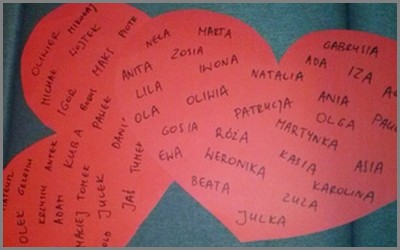 OLIWIER
MIKOŁAJ
WOJTEK
MICHAŁ
IGOR
MAKS
PIOTR
PAWEŁ
KUBA
ANTEK
ADAM
MACIEJ
TOMEK
JULEK
JAŚ
OLEK
NELA
MARTA
ZOSIA
IWONA
ANITA
LILA
OLIWIA
OLA
GOSIA
RÓŻA
EWA
WERONIKA
BEATA
JULKA
NATALIA
PATRYCJA
GABRYSIA
ADA
IZA
ANIA
OLGA
MARTYNKA
KASIA
ASIA
KAROLINA
ZUZA